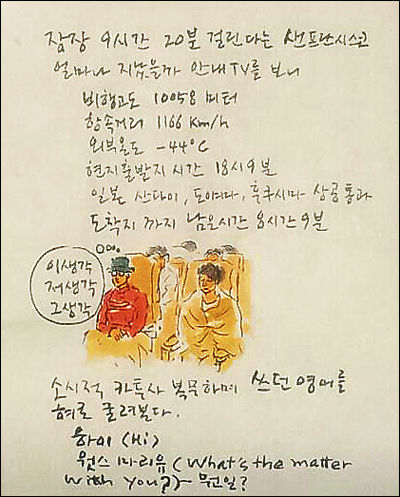 장장 9시간 20분 걸린다는 샌프란시스코
얼마나 지났을까 안내TV를 보니
비행고도 10058 미터
항속거리 1166 Km/h
외부온도 -44°C
현지출발지 시간 18시9분
일본 센다이, 도야마, 후쿠시마 상공통과
도착지까지 남은시간 8시간 9분
이생각
저생각
그생각
소시적 카투사 복무하며 쓰던 영어를
혀로 굴려본다.
하이 (Hi)
원스 마리유 (What's the matter
with you?) 뭔일?